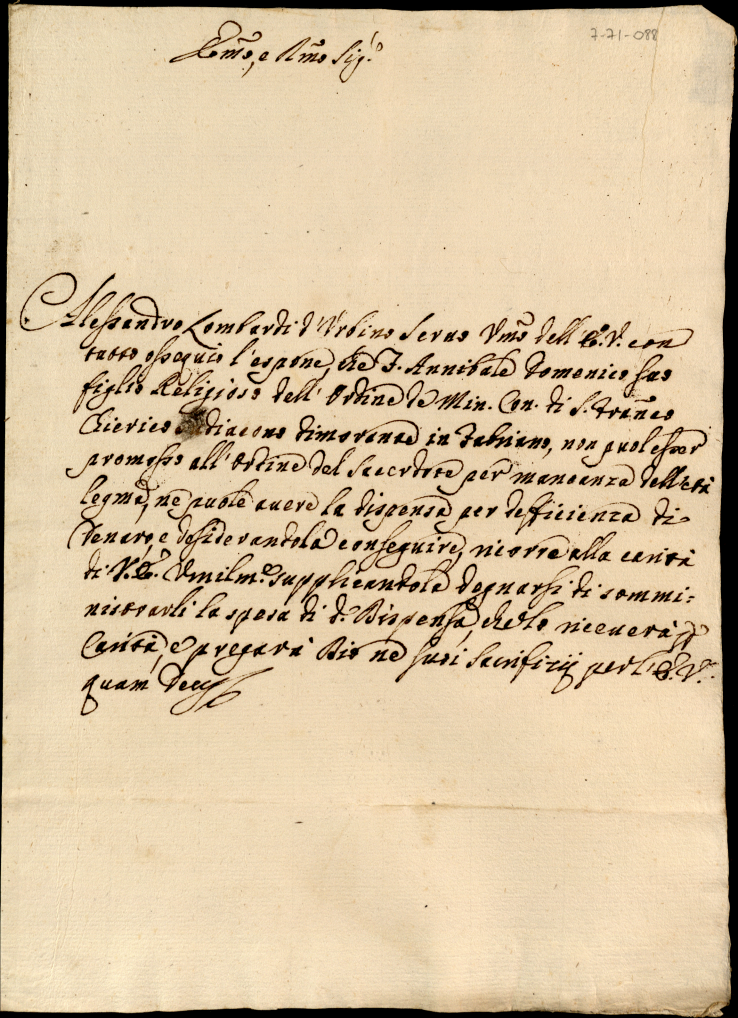 7-71-088
Em̃o, e Rm̃o Sig.r
Alessandro Lombardi d'Urbino Servo Vm̃o dell'E.V. con
tutto ossequio l'espone, che F. Annibale Domenico suo
figlio Religioso dell'Ordine de Min. Con. di S. Fran̄co
Chierico diacono dimorante in Fabriano, non puol esser
promosso all'Ordine del Sacerdote per mancanza dell'età
legma, ne puole avere la dispensa per deficienza di
denaro, e desiderandola conseguire, ricorre alla carità
di V.E. Vmilm.e supplicandola degnarsi di sommi=
nistrarli la spesa di d.a Dispensa, che lo riceverà p
Carità, e pregarà Dio ne suoi Sacrifizij per l'E.V.
quam Deus